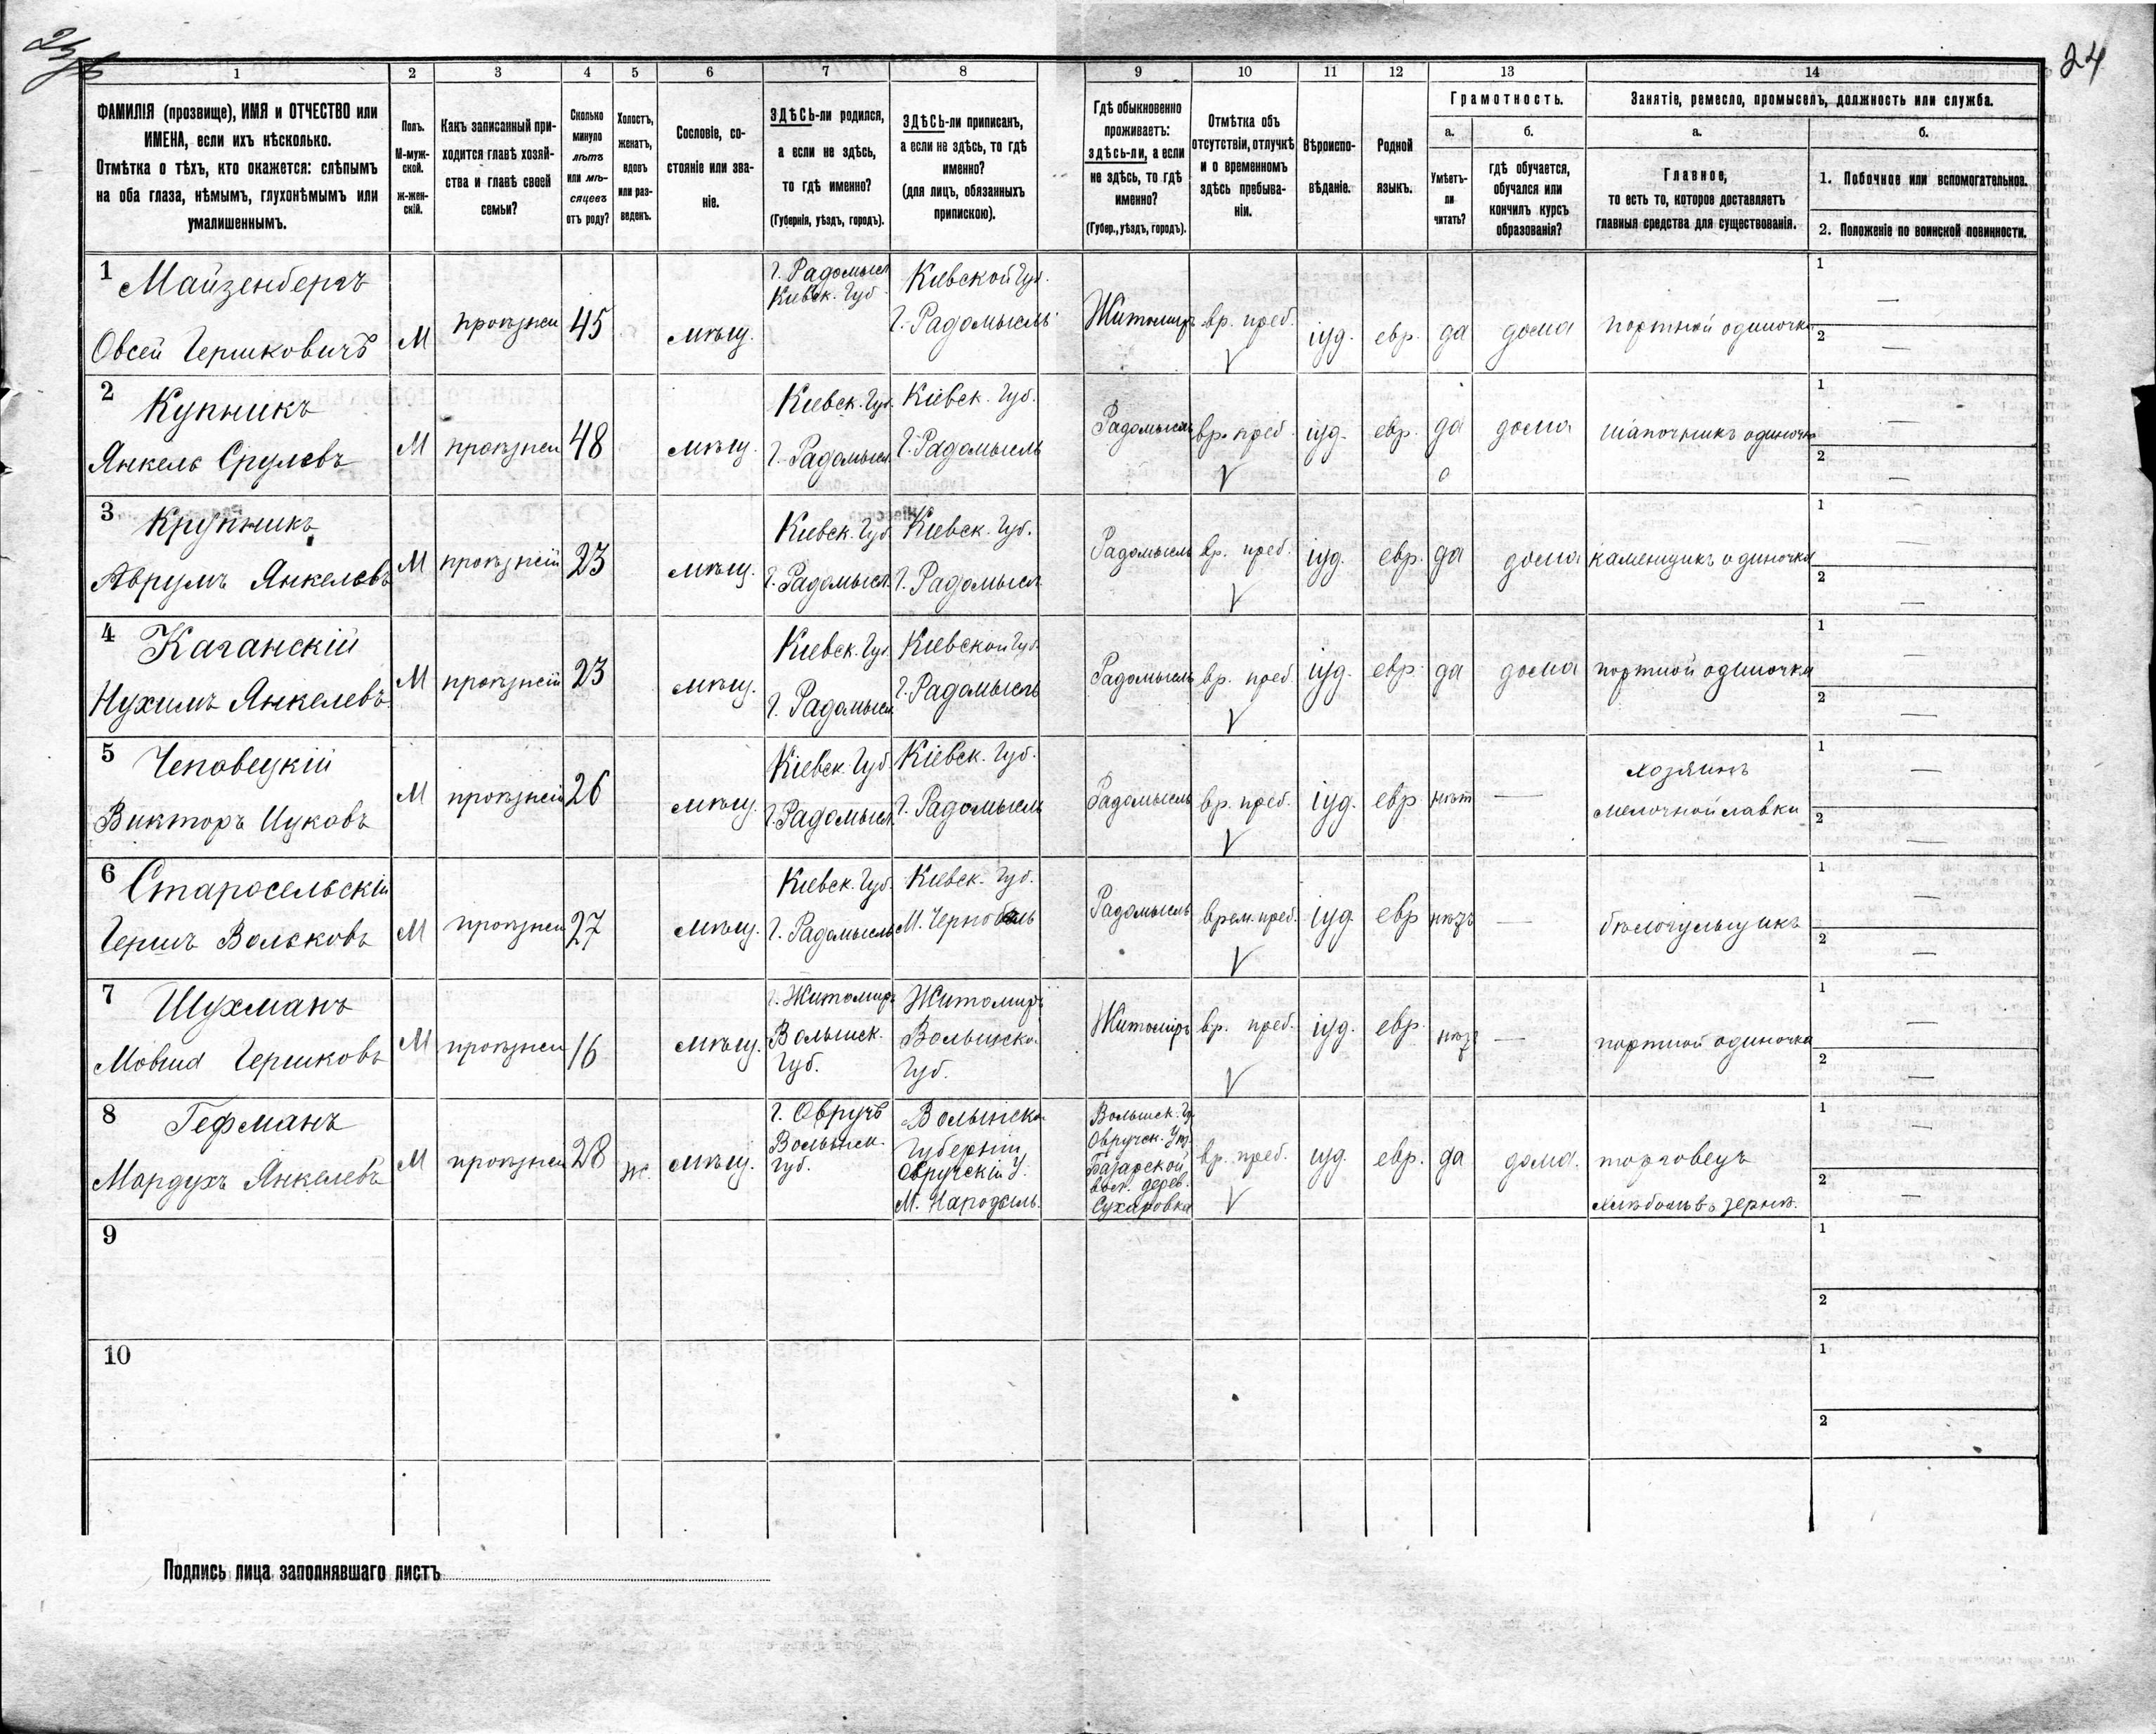 24
1 2 3 4 5 6 7 8 9 10 11 12 13 14
ФАМИЛІЯ (прозвище), ИМЯ и ОТЧЕСТВО или
ИМЕНА, если ихъ нѣсколько.
Отмѣтка о тѣхъ, кто окажется: слѣпымъ
на оба глаза, нѣмымъ, глухонѣмымъ или
умалишеннымъ.
Полъ.
М-муж-
ской.
ж-жен-
скій.
Какъ записанный при-
ходится главѣ хозяй-
ства и главѣ своей
семьи?
Сколько
минуло
лѣтъ
или мѣ-
сяцевъ
отъ роду?
Холостъ,
женатъ,
вдовъ
или раз-
веденъ.
Сословіе, со-
стояніе или зва-
ніе.
ЗДѢСЬ-ли родился,
а если не здѣсь,
то гдѣ именно?
(Губернія, уѣздъ, городъ).
ЗДѢСЬ-ли приписанъ,
а если не здѣсь, то гдѣ
именно?
(для лицъ, обязанныхъ
припискою).
Гдѣ обыкновенно
проживаетъ:
здѣсь-ли, а если
не здѣсь, то гдѣ
именно?
(Губер., уѣздъ, городъ).
Отмѣтка объ
отсутствіи, отлучкѣ
и о временномъ
здѣсь пребыва-
ніи.
Вѣроиспо-
вѣданіе.
Родной
языкъ.
Грамотность.
а.
Умѣетъ-
ли
читать?
б.
гдѣ обучается,
обучался или
кончилъ курсъ
образованія?
Занятіе, ремесло, промыселъ, должность или служба.
а.
Главное,
то есть то, которое доставляетъ
главныя средства для существованія.
б.
1. Побочное или вспомогательное.
2. Положеніе по воинской повинности.
1 Майзенбергъ
Овсей Гершковичъ
М
проѣзжій
45
мѣщ.
г. Радомысл
Кіевск. Губ
Кіевской Губ.
г. Радомысль
Житомиръ
вр. преб.
іуд.
евр.
да
дома
портной одиночка
1 —
2 —
2 Купникъ
Янкель Срулевъ
М
проѣзжій
48
мѣщ.
Кіевск. Губ.
г. Радомысл.
Кіевск. Губ.
г. Радомысль
Радомысль
вр. преб.
іуд.
евр.
да
дома
шапочникъ одиночка
1 —
2 —
3 Крупникъ
Аврумъ Янкелевъ
М
проѣзжій
23
мѣщ.
Кіевск. Губ.
г. Радомысл.
Кіевск. Губ.
г. Радомысл
Радомысль
вр. преб.
іуд.
евр.
да
дома
каменщикъ одиночка
1 —
2 —
4 Каганскій
Нухимъ Янкелевъ
М
проѣзжій
23
мѣщ.
Кіевск. Губ.
г. Радомысл.
Кіевской Губ.
г. Радомысль
Радомысль
вр. преб.
іуд.
евр.
да
дома
портной одиночка
1 —
2 —
5 Чеповецкій
Викторъ Ицковъ
М
проѣзжій
26
мѣщ.
Кіевск. Губ.
г. Радомысл.
Кіевск. Губ.
г. Радомысль
Радомысль
вр. преб.
іуд.
евр
нѣтъ
—
хозяинъ
мелочной лавки
1 —
2 —
6 Старосельскій
Гершъ Вольковъ
М
проѣзжій
27
мѣщ.
Кіевск. Губ.
г. Радомысль
Кіевск. Губ.
М. Чернобыль
Радомысль
врем. преб.
іуд.
евр
нѣтъ
—
1 —
2 —
7 Шухманъ
Мовша Гершковъ
М
проѣзжій
16
мѣщ.
г. Житомиръ
Волынск.
Губ.
Житомиръ
Волынско.
Губ.
Житомиръ
вр. преб.
іуд.
евр.
нѣт
—
портной одиночка
1 —
2 —
8 Гефманъ
Мордухъ Янкелевъ
М
проѣзжій
28
ж.
мѣщ.
г. Овручъ
Волынск.
Губ.
Волынско
Губерніи
Овручскій У.
М. Народичь.
Волынск. Гу
Овручск. Уѣз.
Базарской
вол. дерев.
Сухаровка
вр. преб.
іуд.
евр.
да
дома.
торговецъ
хлѣбомъ въ зернѣ.
1 —
2 —
9
1
2
10
1
2
Подпись лица заполнявшаго листъ